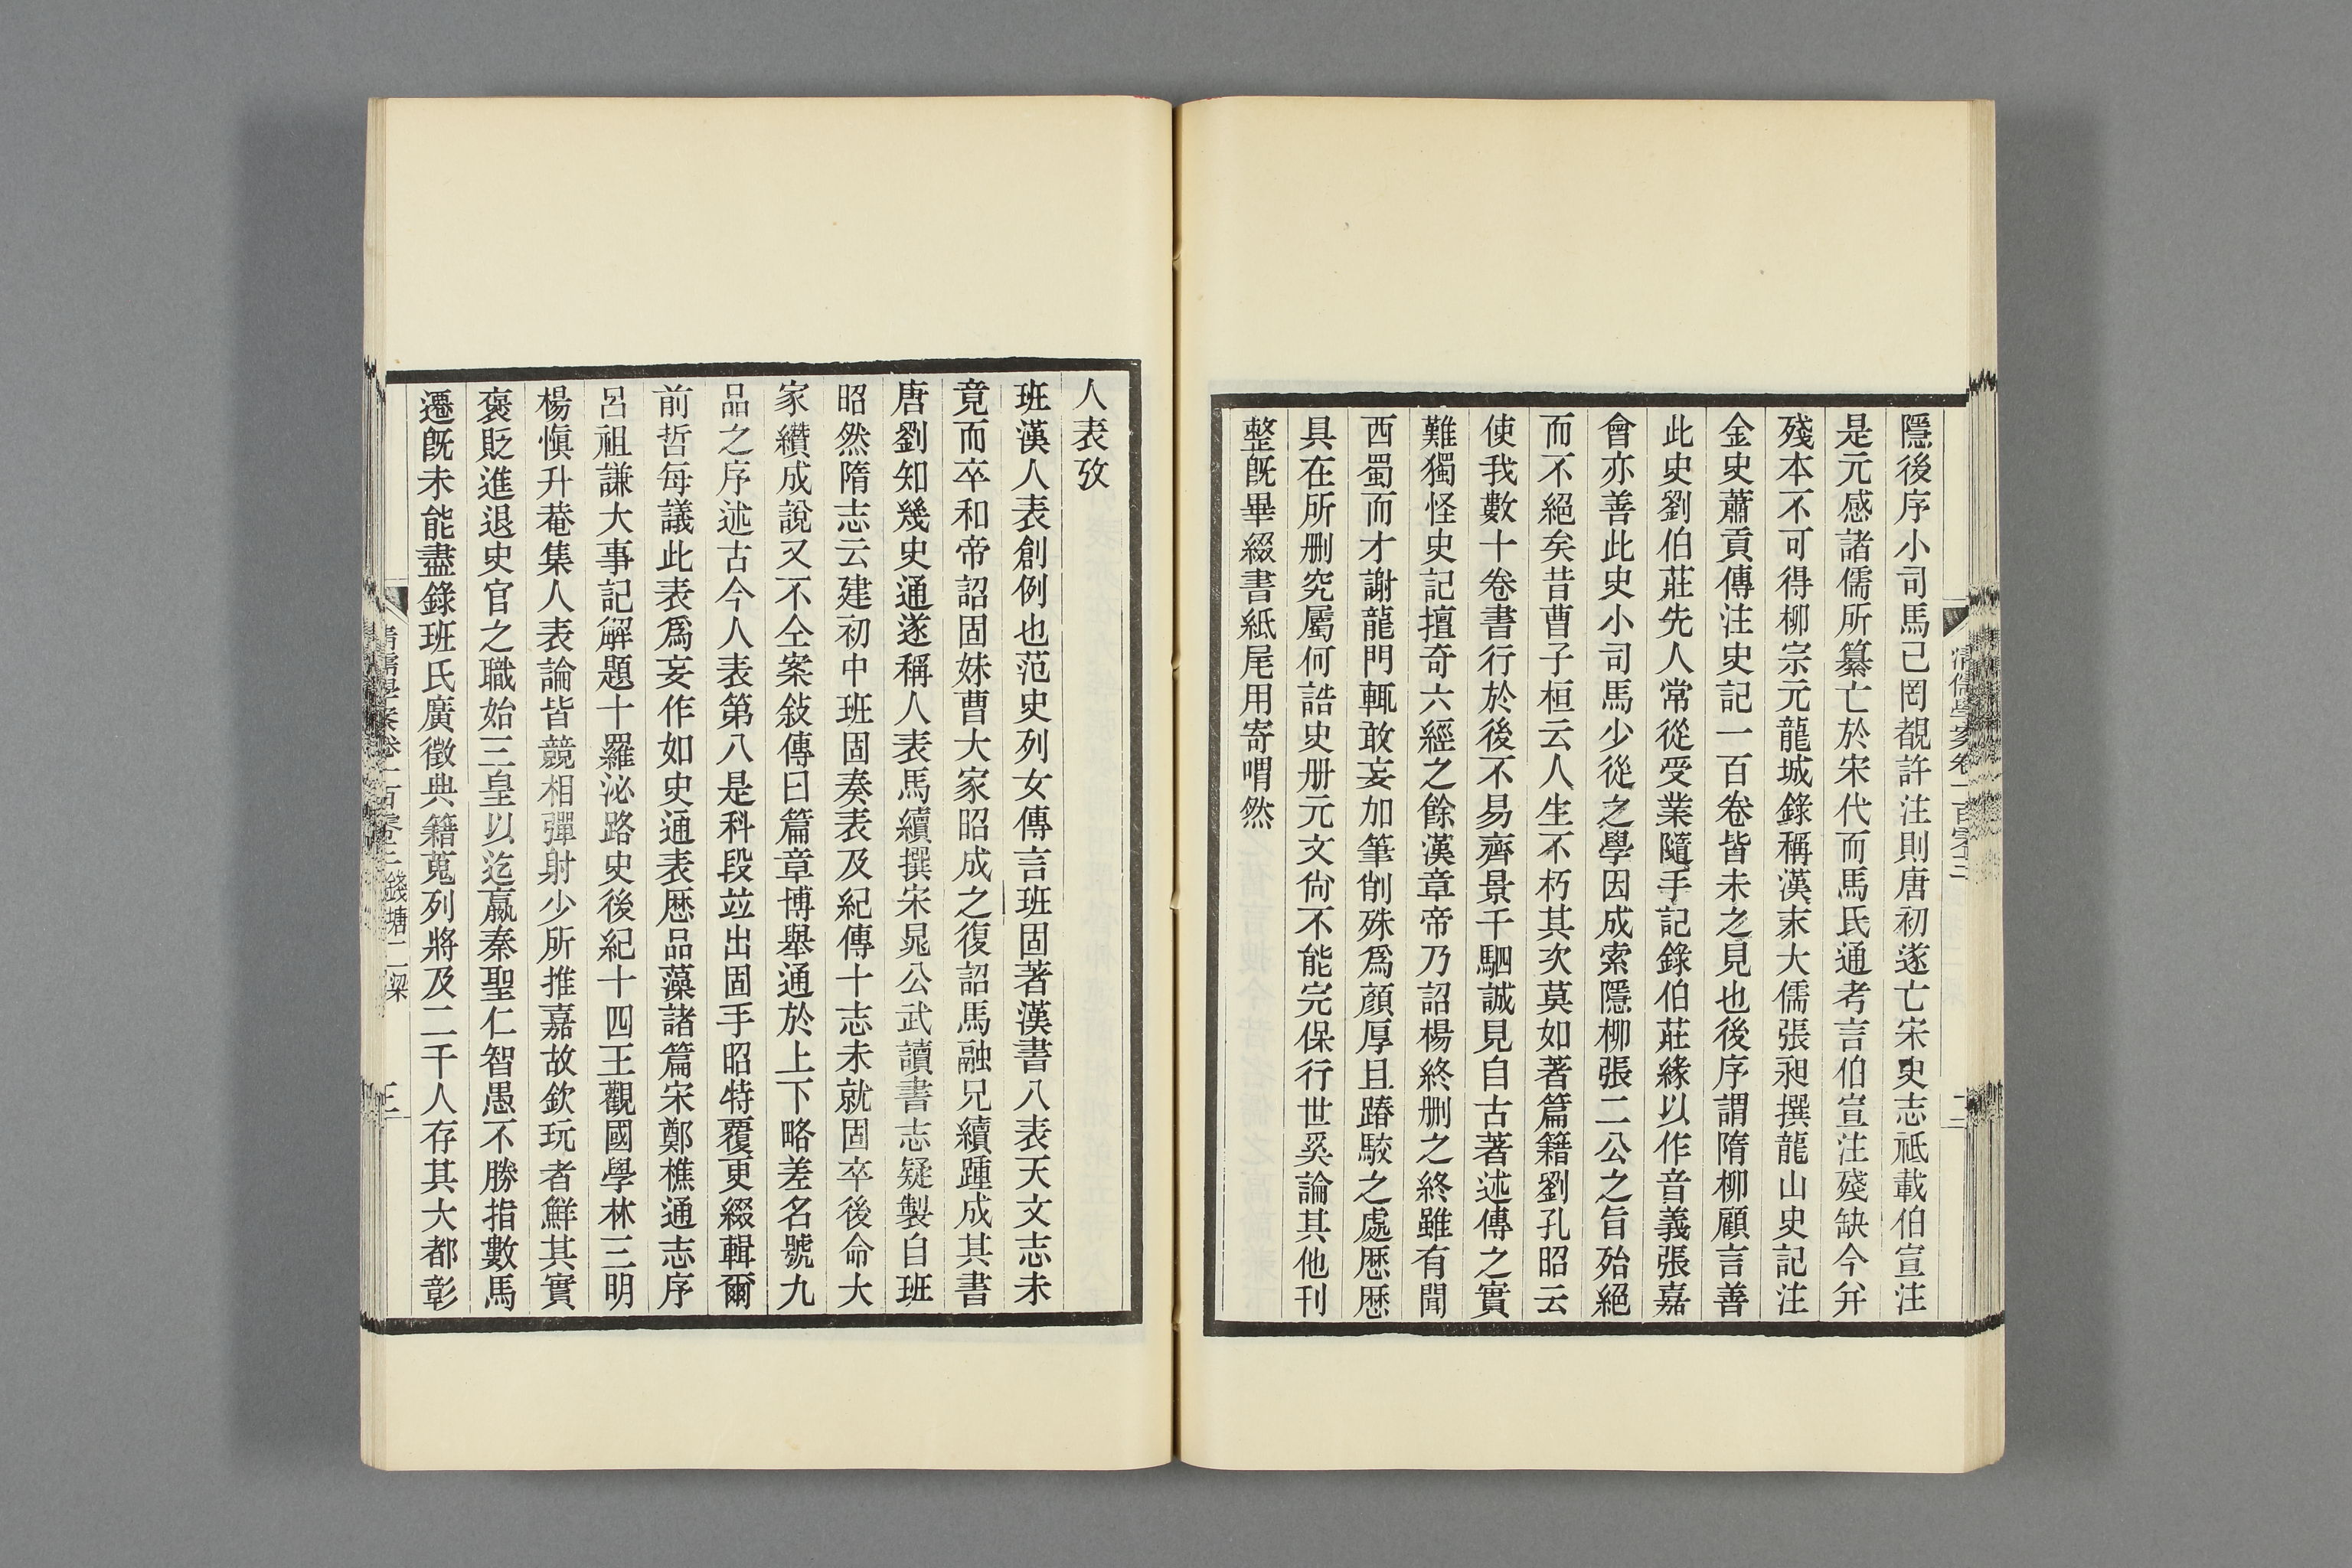 清儒學案卷一百零三
二
隱後序小司馬己罔覩許注則唐初遂亡宋史志祗載伯宣注
是元感諸儒所纂亡於宋代而馬氏通考言伯宣注殘缺今幷
殘本不可得柳宗元龍城錄稱漢末大儒張昶撰龍山史記注
金史蕭貢傳注史記一百卷皆未之見也後序謂隋柳顧言善
此史劉伯莊先人常從受業隨手記錄伯莊緣以作音義張嘉
會亦善此史小司馬少從之學因成索隱柳張二公之旨殆絕
而不絕矣昔曹子桓云人生不朽其次莫如著篇籍劉孔昭云
使我數十卷書行於後不易齊景千駟誠見自古著述傳之實
難獨怪史記擅奇六經之餘漢章帝乃詔楊終刪之終雖有聞
西蜀而才謝龍門輒敢妄加筆削殊爲顏厚且踳駮之處歷歷
具在所刪究屬何語史册元文尙不能完保行世奚論其他刊
整旣畢綴書紙尾用寄喟然
人表攷
班漢人表創例也范史列女傳言班固著漢書八表天文志未
竟而卒和帝詔固妹曹大家昭成之復詔馬融兄續踵成其書
唐劉知幾史通遂稱人表馬續撰宋晁公武讀書志疑製自班
昭然隋志云建初中班固奏表及紀傳十志未就固卒後命大
家續成說又不仝案敍傳曰篇章博舉通於上下略差名號九
品之序述古今人表第八是科段竝出固手昭特覆更綴輯爾
前哲每議此表爲妄作如史通表歷品藻諸篇宋鄭樵通志序
呂祖謙大事記解題十羅泌路史後紀十四王觀國學林三明
楊愼升菴集人表論皆競相彈射少所推嘉故欽玩者鮮其實
褒貶進退史官之職始三皇以迄嬴秦聖仁智愚不勝指數馬
遷旣未能盡錄班氏廣徵典籍蒐列將及二千人存其大都彰
清儒學案卷一百零三 錢塘二梁
三